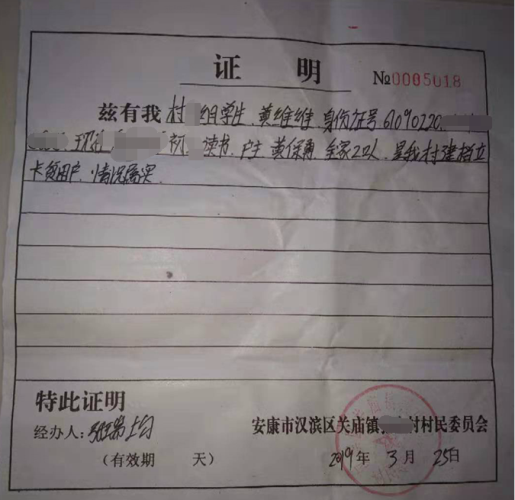 证 明
№0005018
兹有我村 组学生、黄维维、身份证号61090220
现在 初、读书、户主 黄保 全家2口人、是我村建档立
卡贫困户、情况属实
特此证明
经办人:
安康市汉滨区关庙镇 村村民委员会
(有效期 天)
2019年 3 月 25日